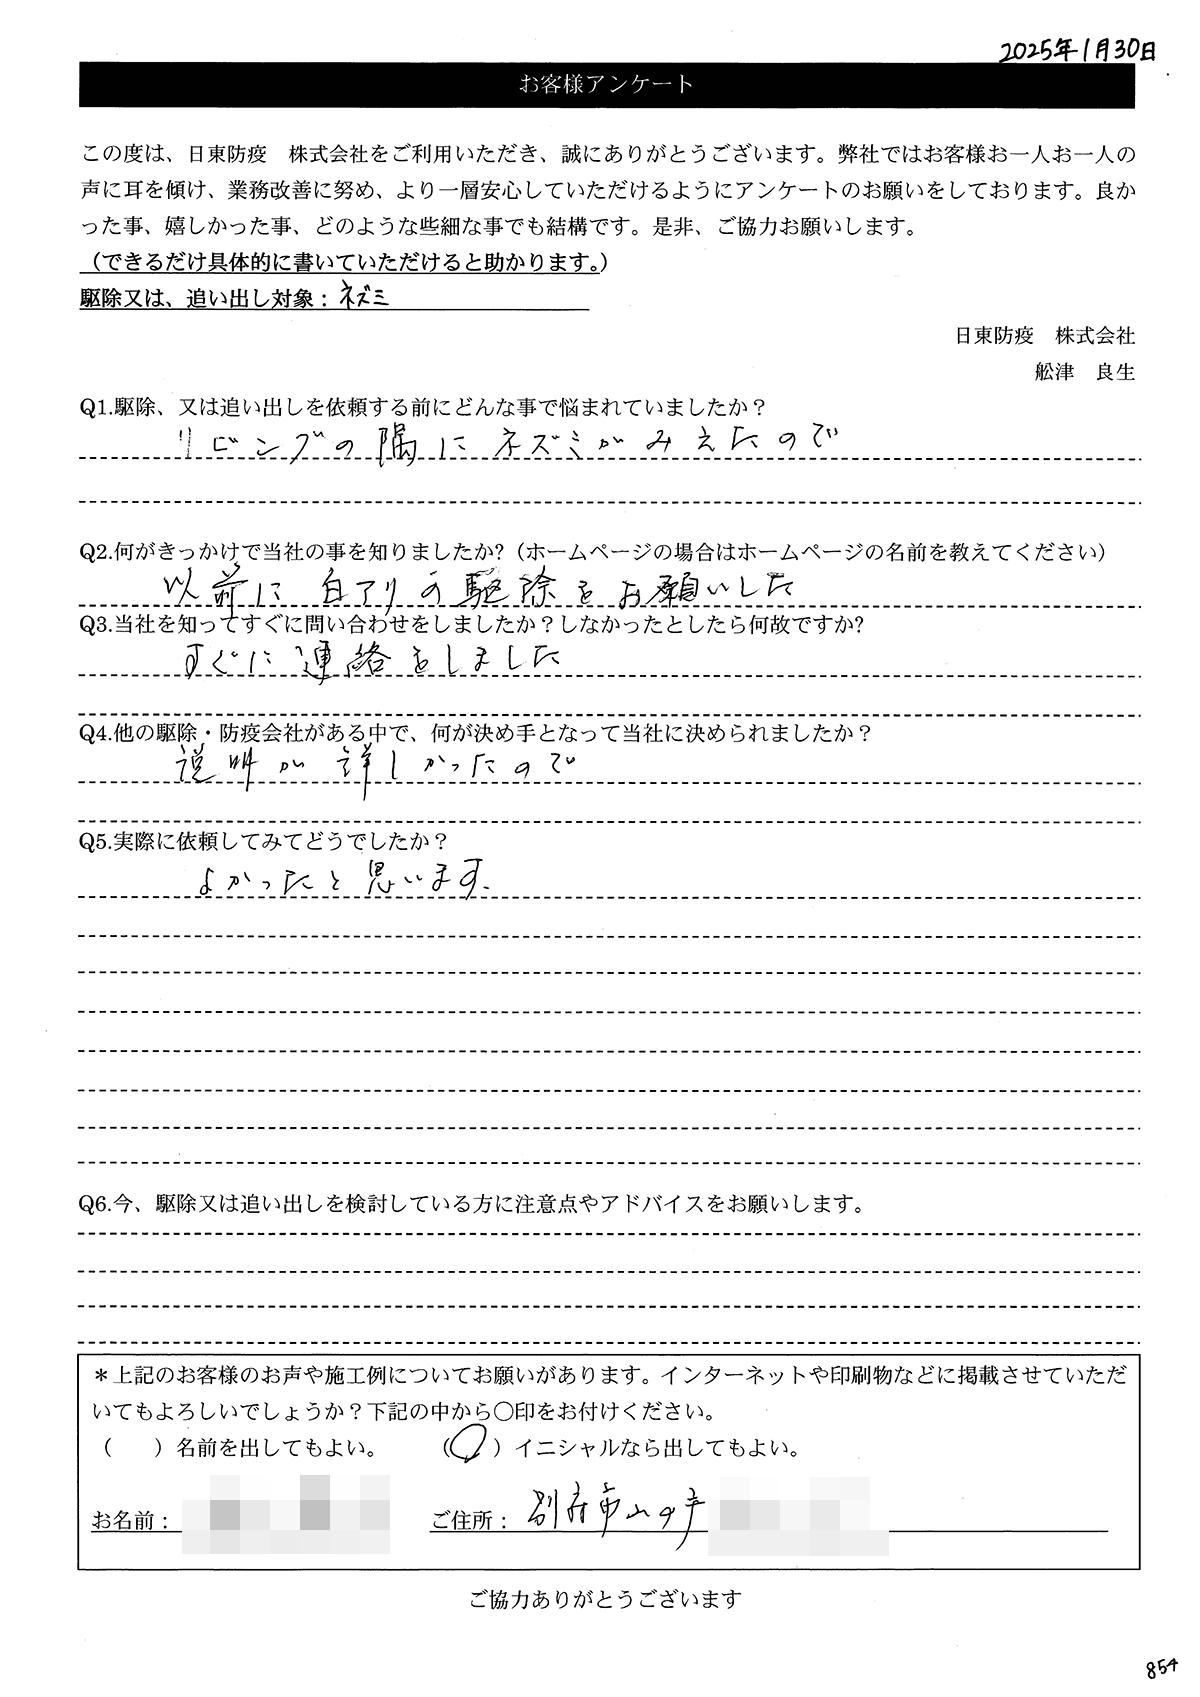 2025年1月30日
お客様アンケート
この度は、日東防疫　株式会社をご利用いただき、誠にありがとうございます。弊社ではお客様お一人お一人の
声に耳を傾け、業務改善に努め、より一層安心していただけるようにアンケートのお願いをしております。良か
った事、嬉しかった事、どのような些細な事でも結構です。是非、ご協力お願いします。
（できるだけ具体的に書いていただけると助かります。）
駆除又は、追い出し対象：ネズミ
日東防疫　株式会社
舩津　良生
Q1.駆除、又は追い出しを依頼する前にどんな事で悩まれていましたか？
リビングの隅にネズミがみえたので
Q2.何がきっかけで当社の事を知りましたか?（ホームページの場合はホームページの名前を教えてください）
以前に白アリの駆除をお願いした
Q3.当社を知ってすぐに問い合わせをしましたか？しなかったとしたら何故ですか?
すぐに連絡をしました
Q4.他の駆除・防疫会社がある中で、何が決め手となって当社に決められましたか？
説明が詳しかったので
Q5.実際に依頼してみてどうでしたか？
よかったと思います.
Q6.今、駆除又は追い出しを検討している方に注意点やアドバイスをお願いします。
＊上記のお客様のお声や施工例についてお願いがあります。インターネットや印刷物などに掲載させていただ
いてもよろしいでしょうか？下記の中から〇印をお付けください。
（　　）名前を出してもよい。　　（〇）イニシャルなら出してもよい。
お名前：　　ご住所：別府市山の手
ご協力ありがとうございます
854